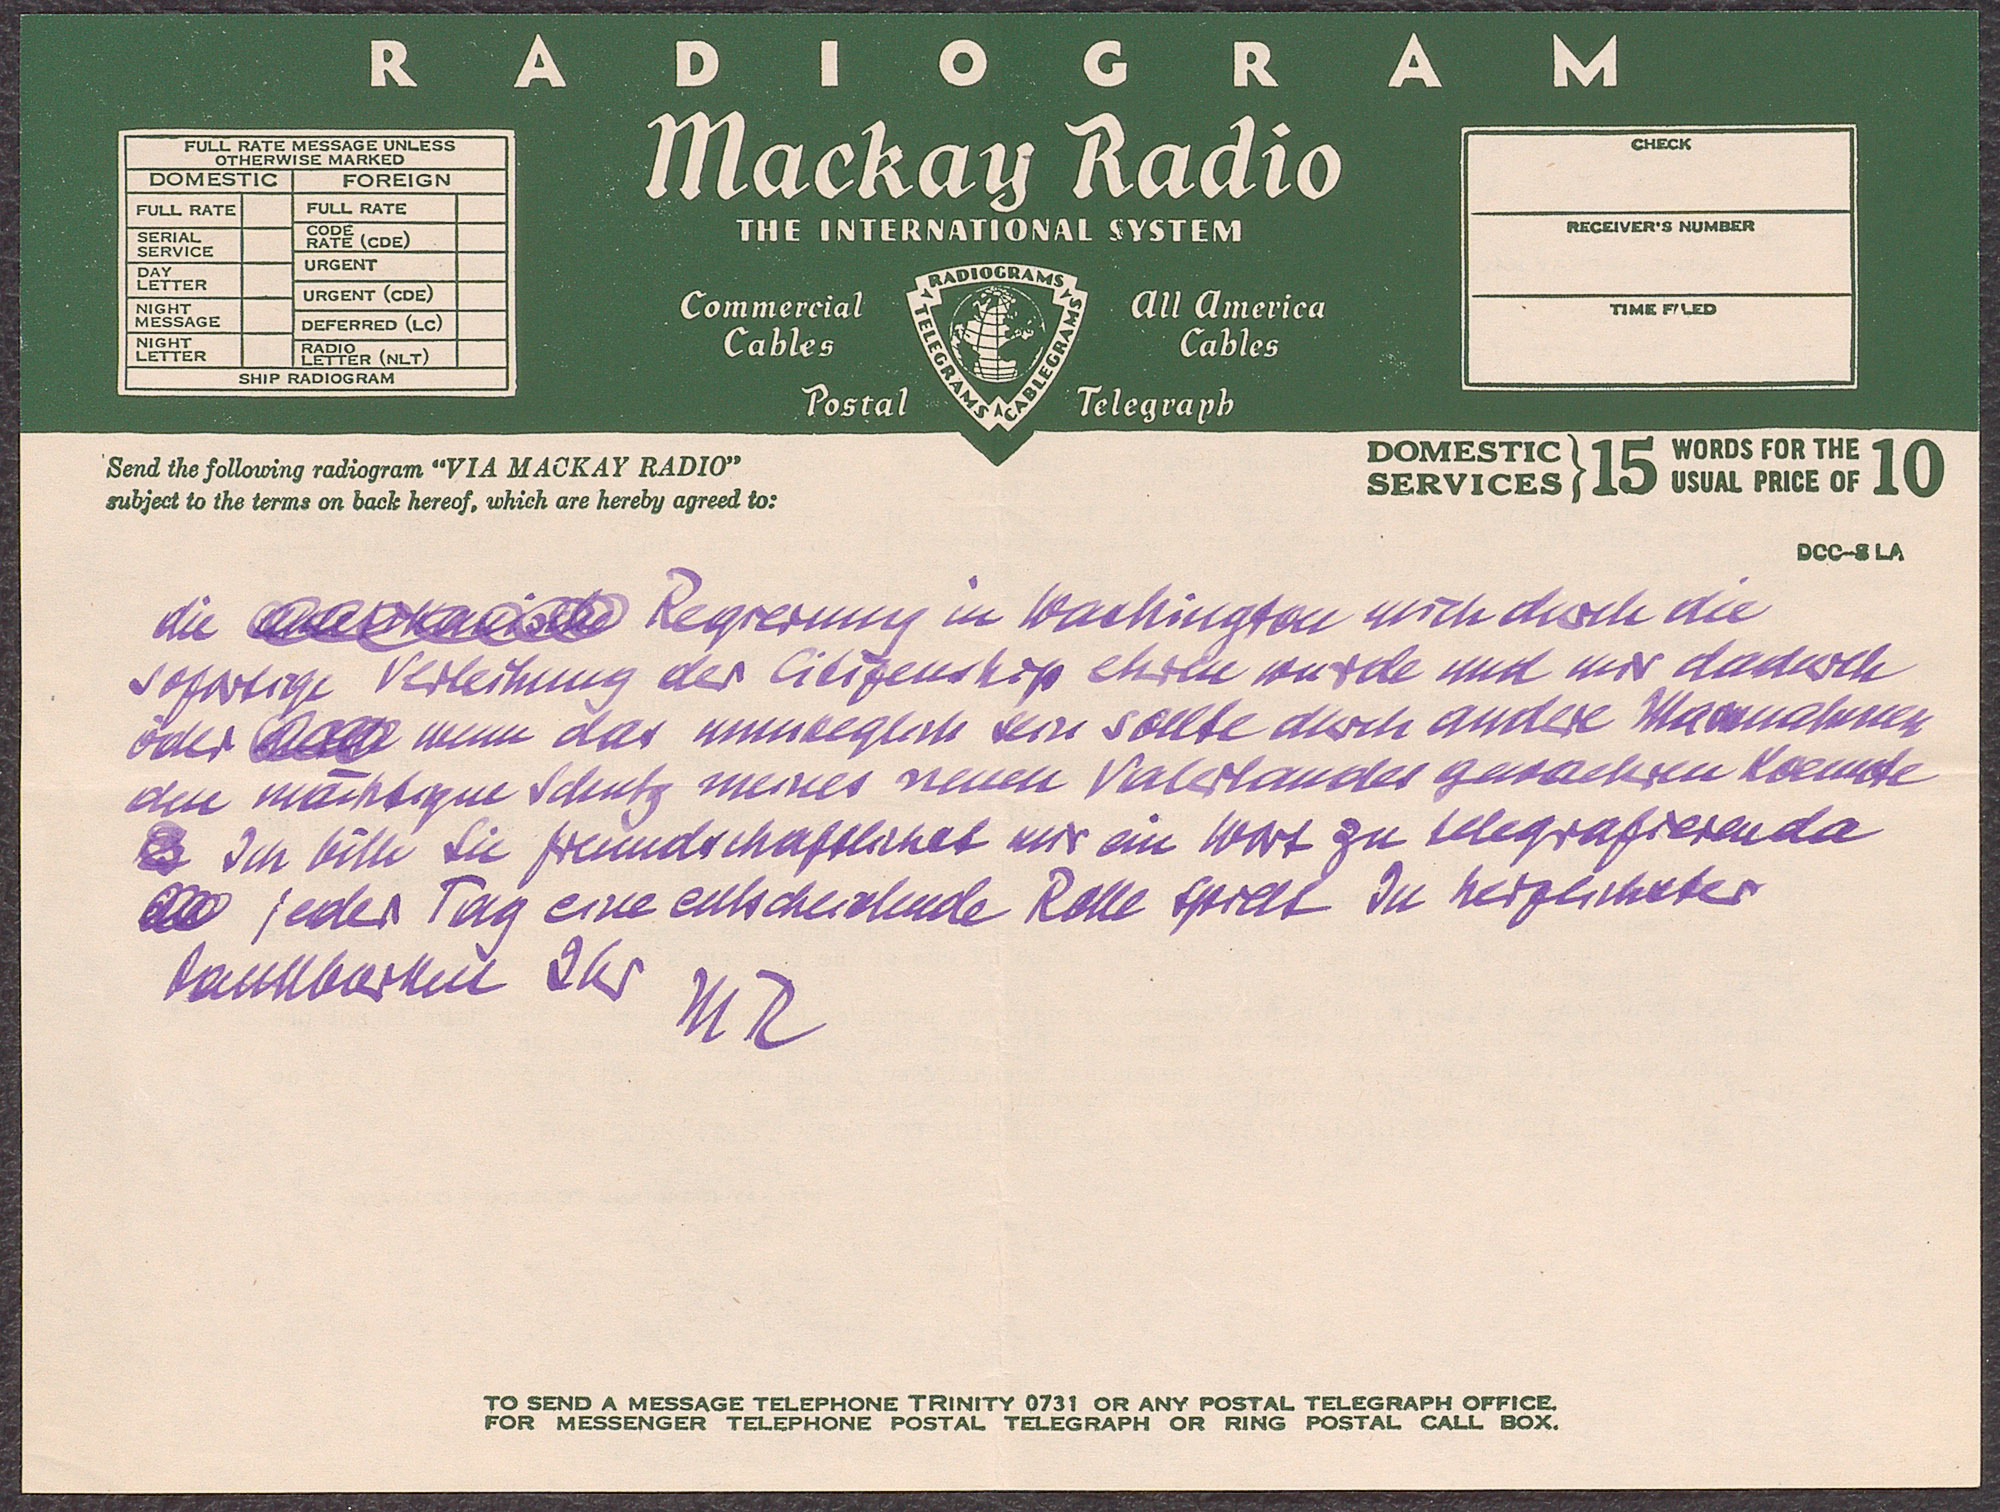 RADIOGRAM
Mackay Radio
THE INTERNATIONAL SYSTEM
Commercial Cables
All America Cables
Postal Telegraph
RADIOGRAMS TELEGRAMS CABLEGRAMS
FULL RATE MESSAGE UNLESS
OTHERWISE MARKED
DOMESTIC FOREIGN
FULL RATE FULL RATE
SERIAL SERVICE CODE RATE (CDE)
DAY LETTER URGENT
NIGHT MESSAGE URGENT (CDE)
NIGHT LETTER DEFERRED (LC)
RADIO LETTER (NLT)
SHIP RADIOGRAM
CHECK
RECEIVER'S NUMBER
TIME FILED
Send the following radiogram "VIA MACKAY RADIO"
subject to the terms on back hereof, which are hereby agreed to:
DOMESTIC SERVICES } 15 WORDS FOR THE USUAL PRICE OF 10
DCC-8 LA
die amerikanische Regierung in Washington mich durch die
sofortige Verleihung der Citizenship ehren wurde und mir dadurch
oder wenn das unmoeglich sein sollte durch andere Massnahmen
den mächtigen Schutz meines neuen Vaterlandes gewaehren koennte
Ich bitte Sie freundschaftlichst mir ein Wort zu telegrafieren da
jeder Tag eine entscheidende Rolle spielt In herzlichster
Dankbarkeit Ihr MR
TO SEND A MESSAGE TELEPHONE TRINITY 0731 OR ANY POSTAL TELEGRAPH OFFICE.
FOR MESSENGER TELEPHONE POSTAL TELEGRAPH OR RING POSTAL CALL BOX.